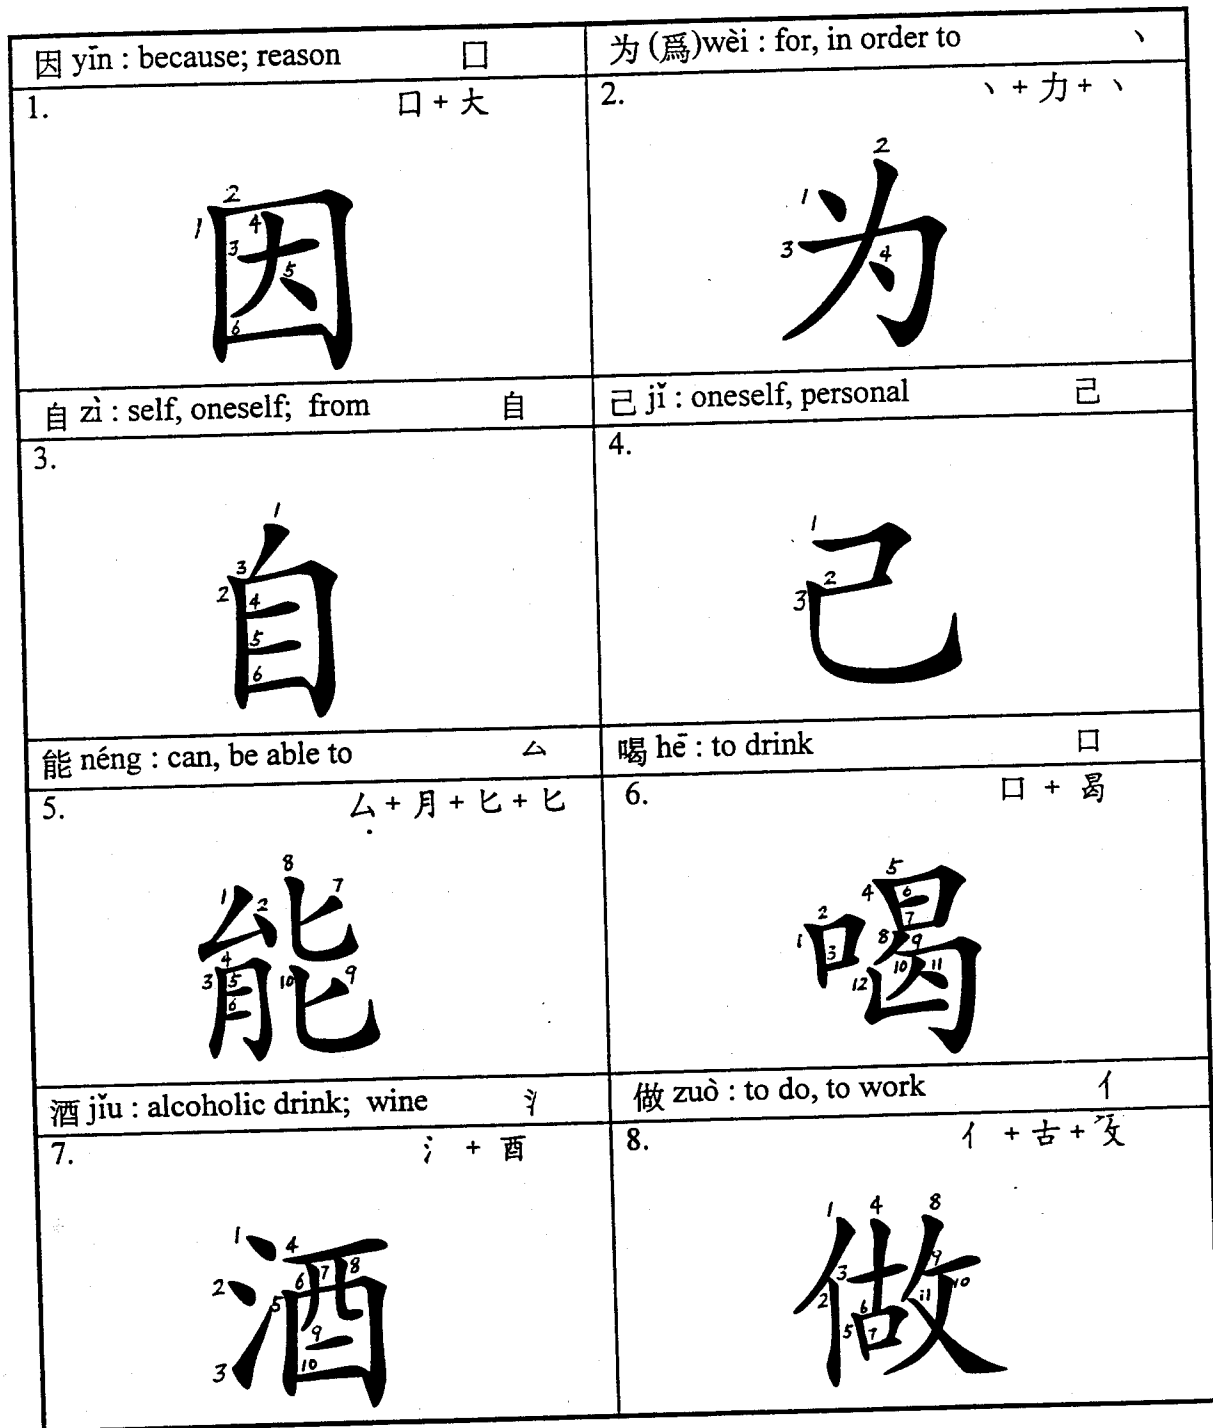 因 yīn : because; reason 囗
为 (爲)wèi : for, in order to 丶
1. 口 + 大
2. 丶 + 力 + 丶
1 2 3 4 5 6
因
1 2 3 4
为
自 zì : self, oneself; from 自
己 jǐ : oneself, personal 己
3.
4.
1 2 3 4 5 6
自
1 2 3
己
能 néng : can, be able to 厶
喝 hē : to drink 口
5. 厶 + 月 + 匕 + 匕
6. 口 + 曷
1 2 3 4 5 6 7 8 9 10
能
1 2 3 4 5 6 7 8 9 10 11 12
喝
酒 jǐu : alcoholic drink; wine 氵
做 zuò : to do, to work 亻
7. 氵 + 酉
8. 亻 + 古 + 攵
1 2 3 4 5 6 7 8 9 10
酒
1 2 3 4 5 6 7 8 9 10 11
做